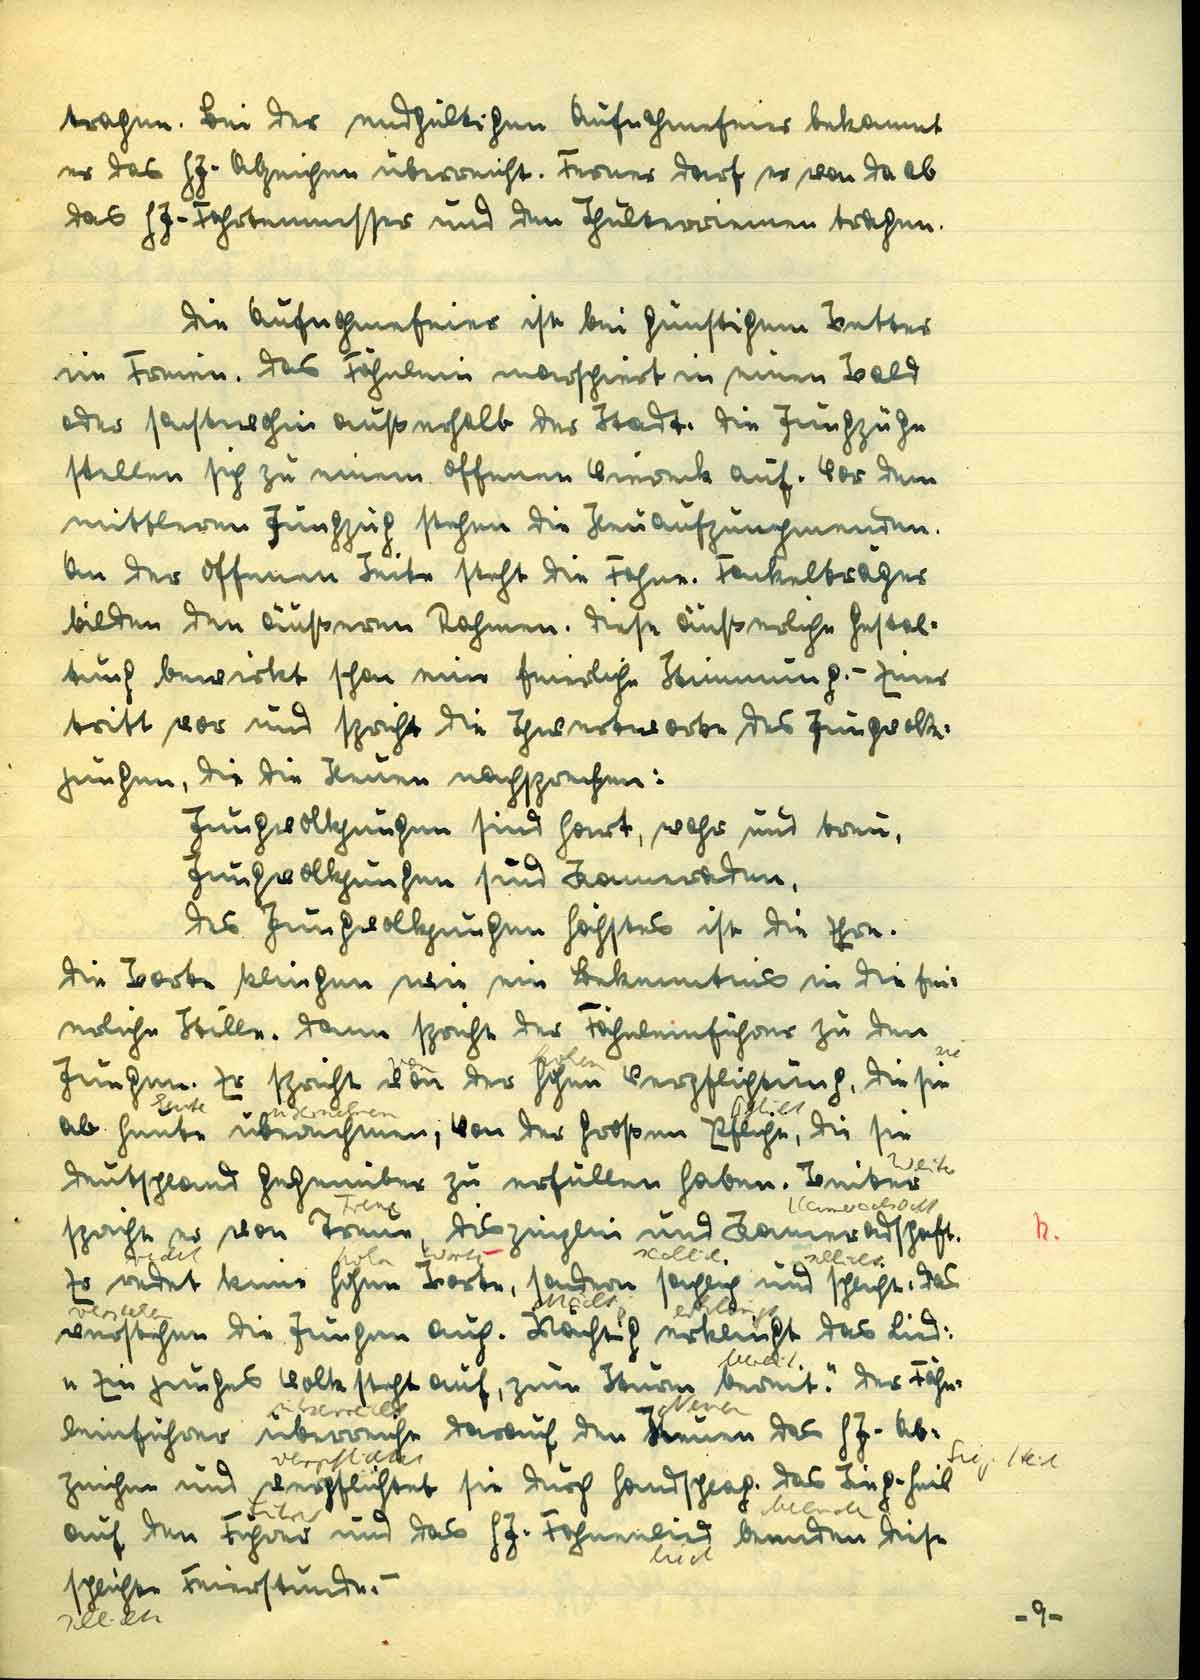 tragen. Bei der endgültigen Aufnahmefeier bekommt
er das HJ-Abzeichen überreicht. Ferner darf er von da ab
das HJ-Fahrtenmesser und den Schulterriemen tragen.
Die Aufnahmefeier ist bei günstigem Wetter
im Freien. Das Fähnlein marschiert in einen Wald
oder sonstwohin außerhalb der Stadt. Die Jungzüge
stellen sich zu einem offenen Viereck auf. Vor dem
mittleren Jungzug stehen die Neuaufzunehmenden.
An der offenen Seite steht die Fahne. Fackelträger
bilden den äußeren Rahmen. Diese äußerliche Gestal-
tung bewirkt schon eine feierliche Stimmung.- Einer
tritt vor und spricht die Schwertworte des Jungvolk-
jungen, die die Neuen nachsprechen:
Jungvolkjungen sind hart, wahr und treu,
Jungvolkjungen sind Kameraden,
des Jungvolkjungen höchstes ist die Ehre.
Die Worte klingen wie ein Bekenntnis in die fei-
erliche Stille. Dann spricht der Fähnleinführer zu den
von hohen sie
Jungen. Er spricht von der hohen Verpflichtung, die sie
heute übernehmen Pflicht
ab heute übernehmen, von der großen Pflicht, die sie
Weiter
Deutschland gegenüber zu erfüllen haben. Weiter
Treue Kameradschaft
spricht er von Treue, Disziplin und Kameradschaft. R.
redet hohen Worte sachlich schlicht
Er redet keine hohen Worte, sondern sachlich und schlicht. Das
verstehen Mächtig erklingt
verstehen die Jungen auch. Mächtig erklingt das Lied:
bereit
„Ein junges Volk steht auf, zum Sturm bereit." Der Fähn-
überreicht Neuen
leinführer überreicht darauf den Neuen das HJ-Ab-
verpflichtet Sieg-Heil
zeichen und verpflichtet sie durch Handschlag. Das Sieg-Heil
Führer beenden
auf den Führer und das HJ-Fahnenlied beenden diese
Lied
schlichte Feierstunde.-
schlichte
-9-